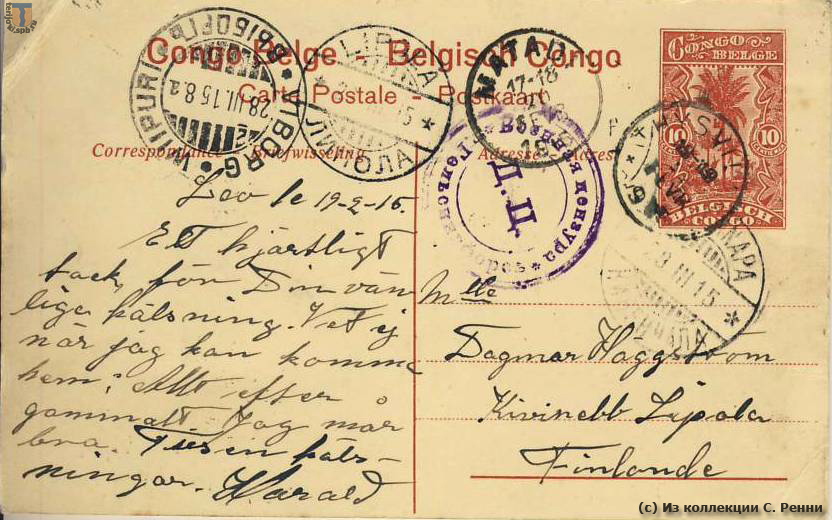 Congo Belge - Belgisch Congo
Carte Postale - Postkaart
Correspondance - Briefwisseling
Adresse - Adres
CONGO BELGE
10 10
BELGISCH CONGO
WIIPURI * VIBORG *
28.VII.15.8 a
LIPOLA
MATADI
17-18
19
Военная цензура
Гельсингфорсъ
Ц. Д.
15
Leo le 19-2-15.
Ett hjärtligt
tack för Din vän
liga hälsning. Vet ej
när jag kan komma
hem; Allt efter
gammalt. Jag mår
bra. Tusen häls-
ningar. Harald
Mlle
Dagmar Häggström
Kivinebb Lipola
Finlande
(c) Из коллекции С. Ренни